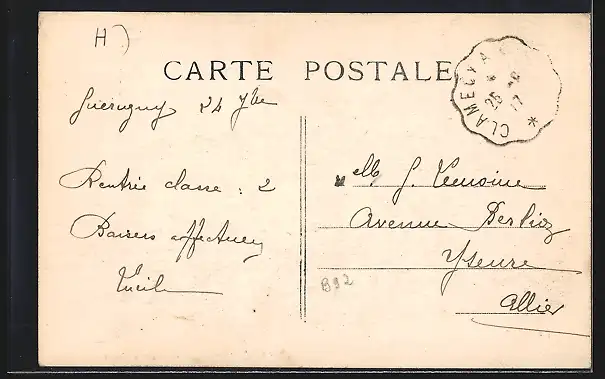 H)
CARTE POSTALE
CLAMECY A
25
17
Guérigny 24 7bre
Rentrée classe : 2
Baisers affectueux
Lucile
Mlle G. Lemoine
Avenue Berlioz
Yseure
Allier
B92